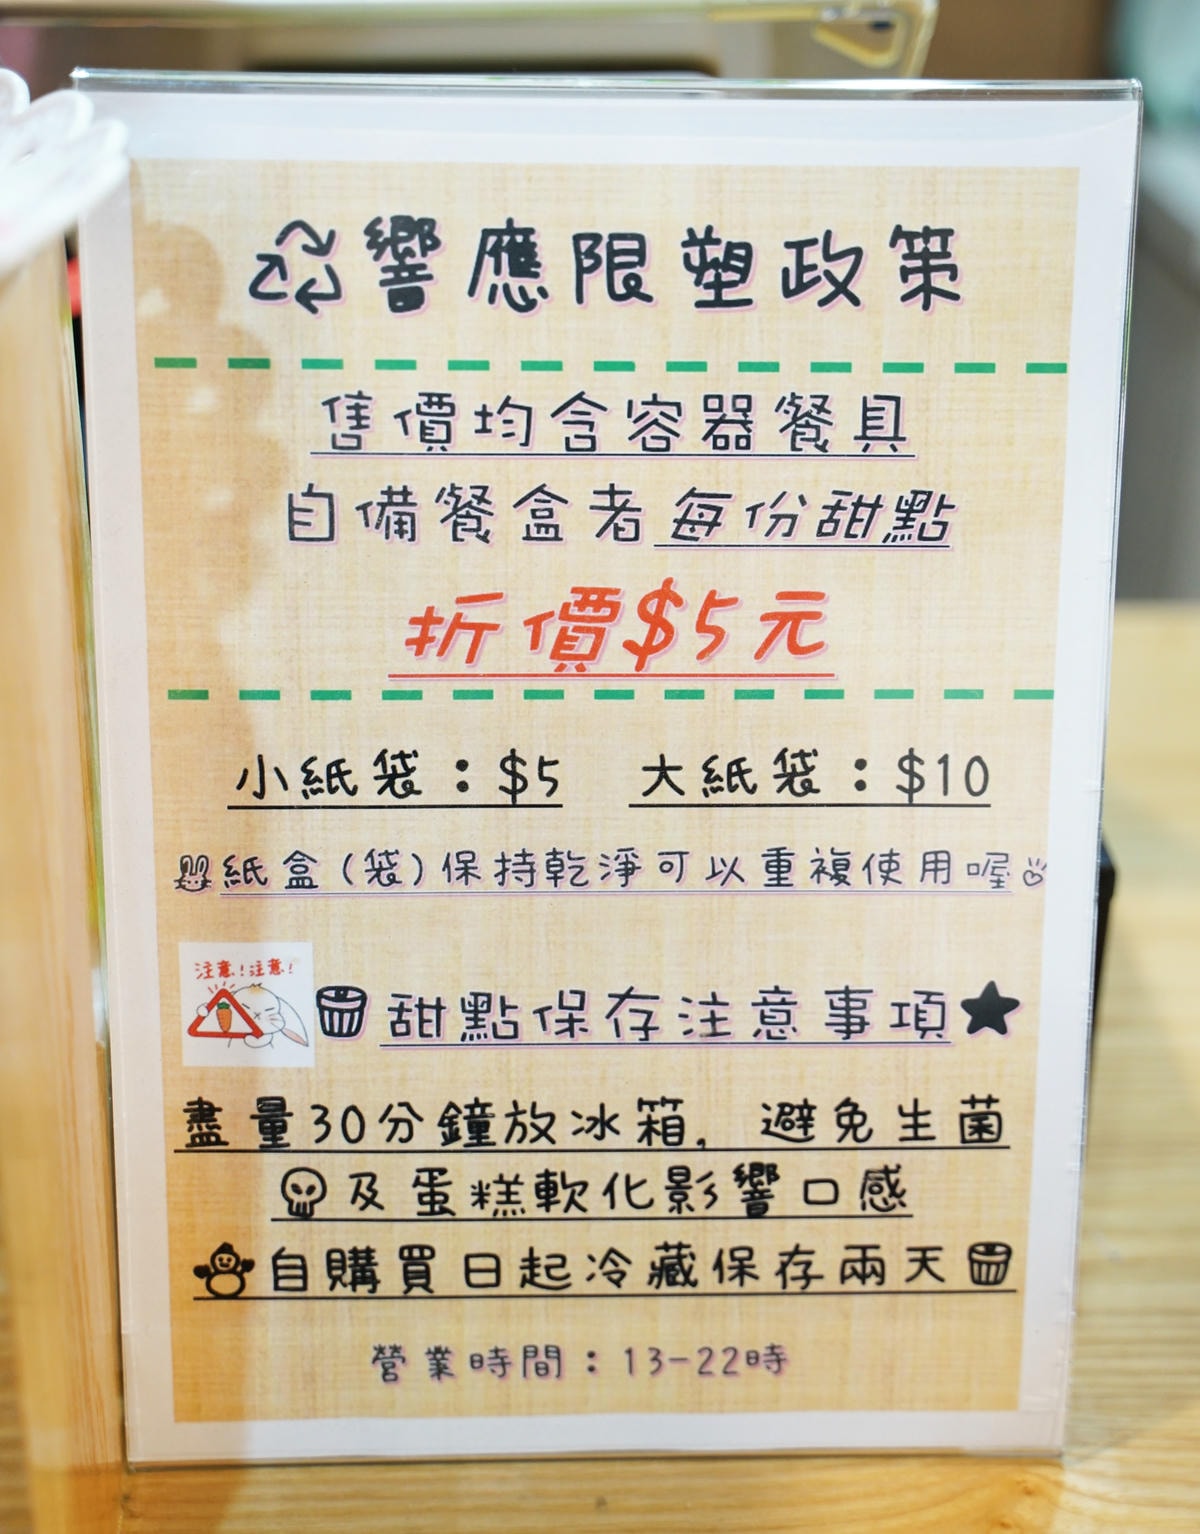 響應限塑政策
售價均含容器餐具
自備餐盒者每份甜點
折價$5元
小紙袋：$5 大紙袋：$10
紙盒(袋)保持乾淨可以重複使用喔
注意!注意!
甜點保存注意事項
盡量30分鐘放冰箱，避免生菌
及蛋糕軟化影響口感
自購買日起冷藏保存兩天
營業時間：13-22時